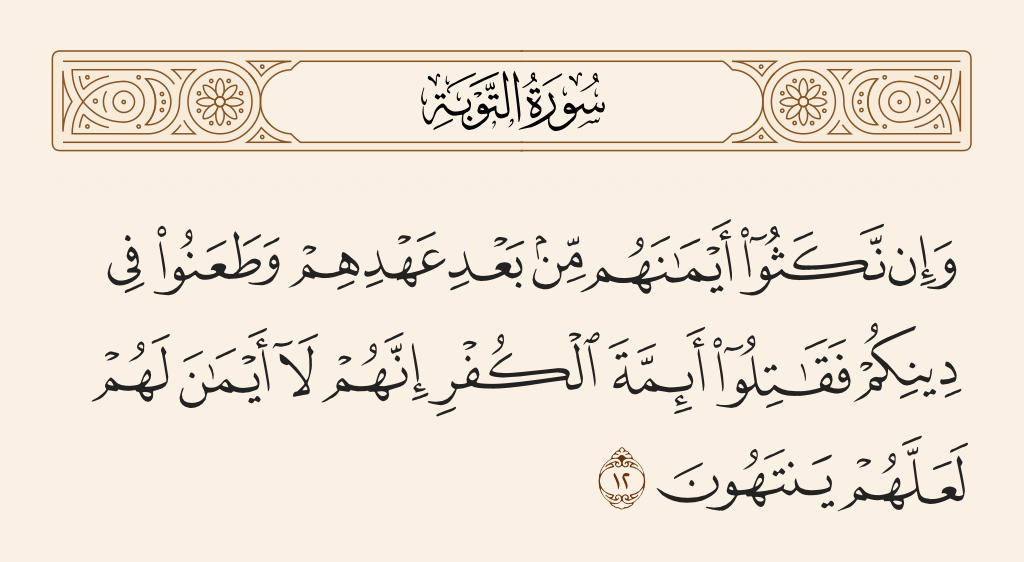 سُورَةُ التَّوۡبَةِ
وَإِن نَّكَثُوٓاْ أَيۡمَٰنَهُم مِّنۢ بَعۡدِ عَهۡدِهِمۡ وَطَعَنُواْ فِي
دِينِكُمۡ فَقَٰتِلُوٓاْ أَئِمَّةَ ٱلۡكُفۡرِ إِنَّهُمۡ لَآ أَيۡمَٰنَ لَهُمۡ
لَعَلَّهُمۡ يَنتَهُونَ ١٢